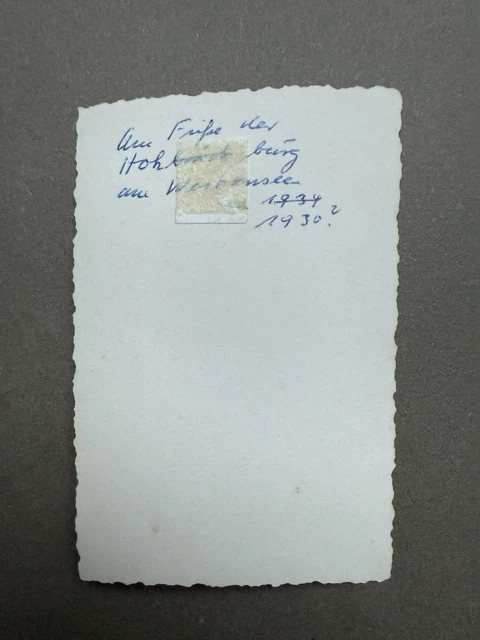 Am Fuße der
burg
am Weissensee
1934
1930?